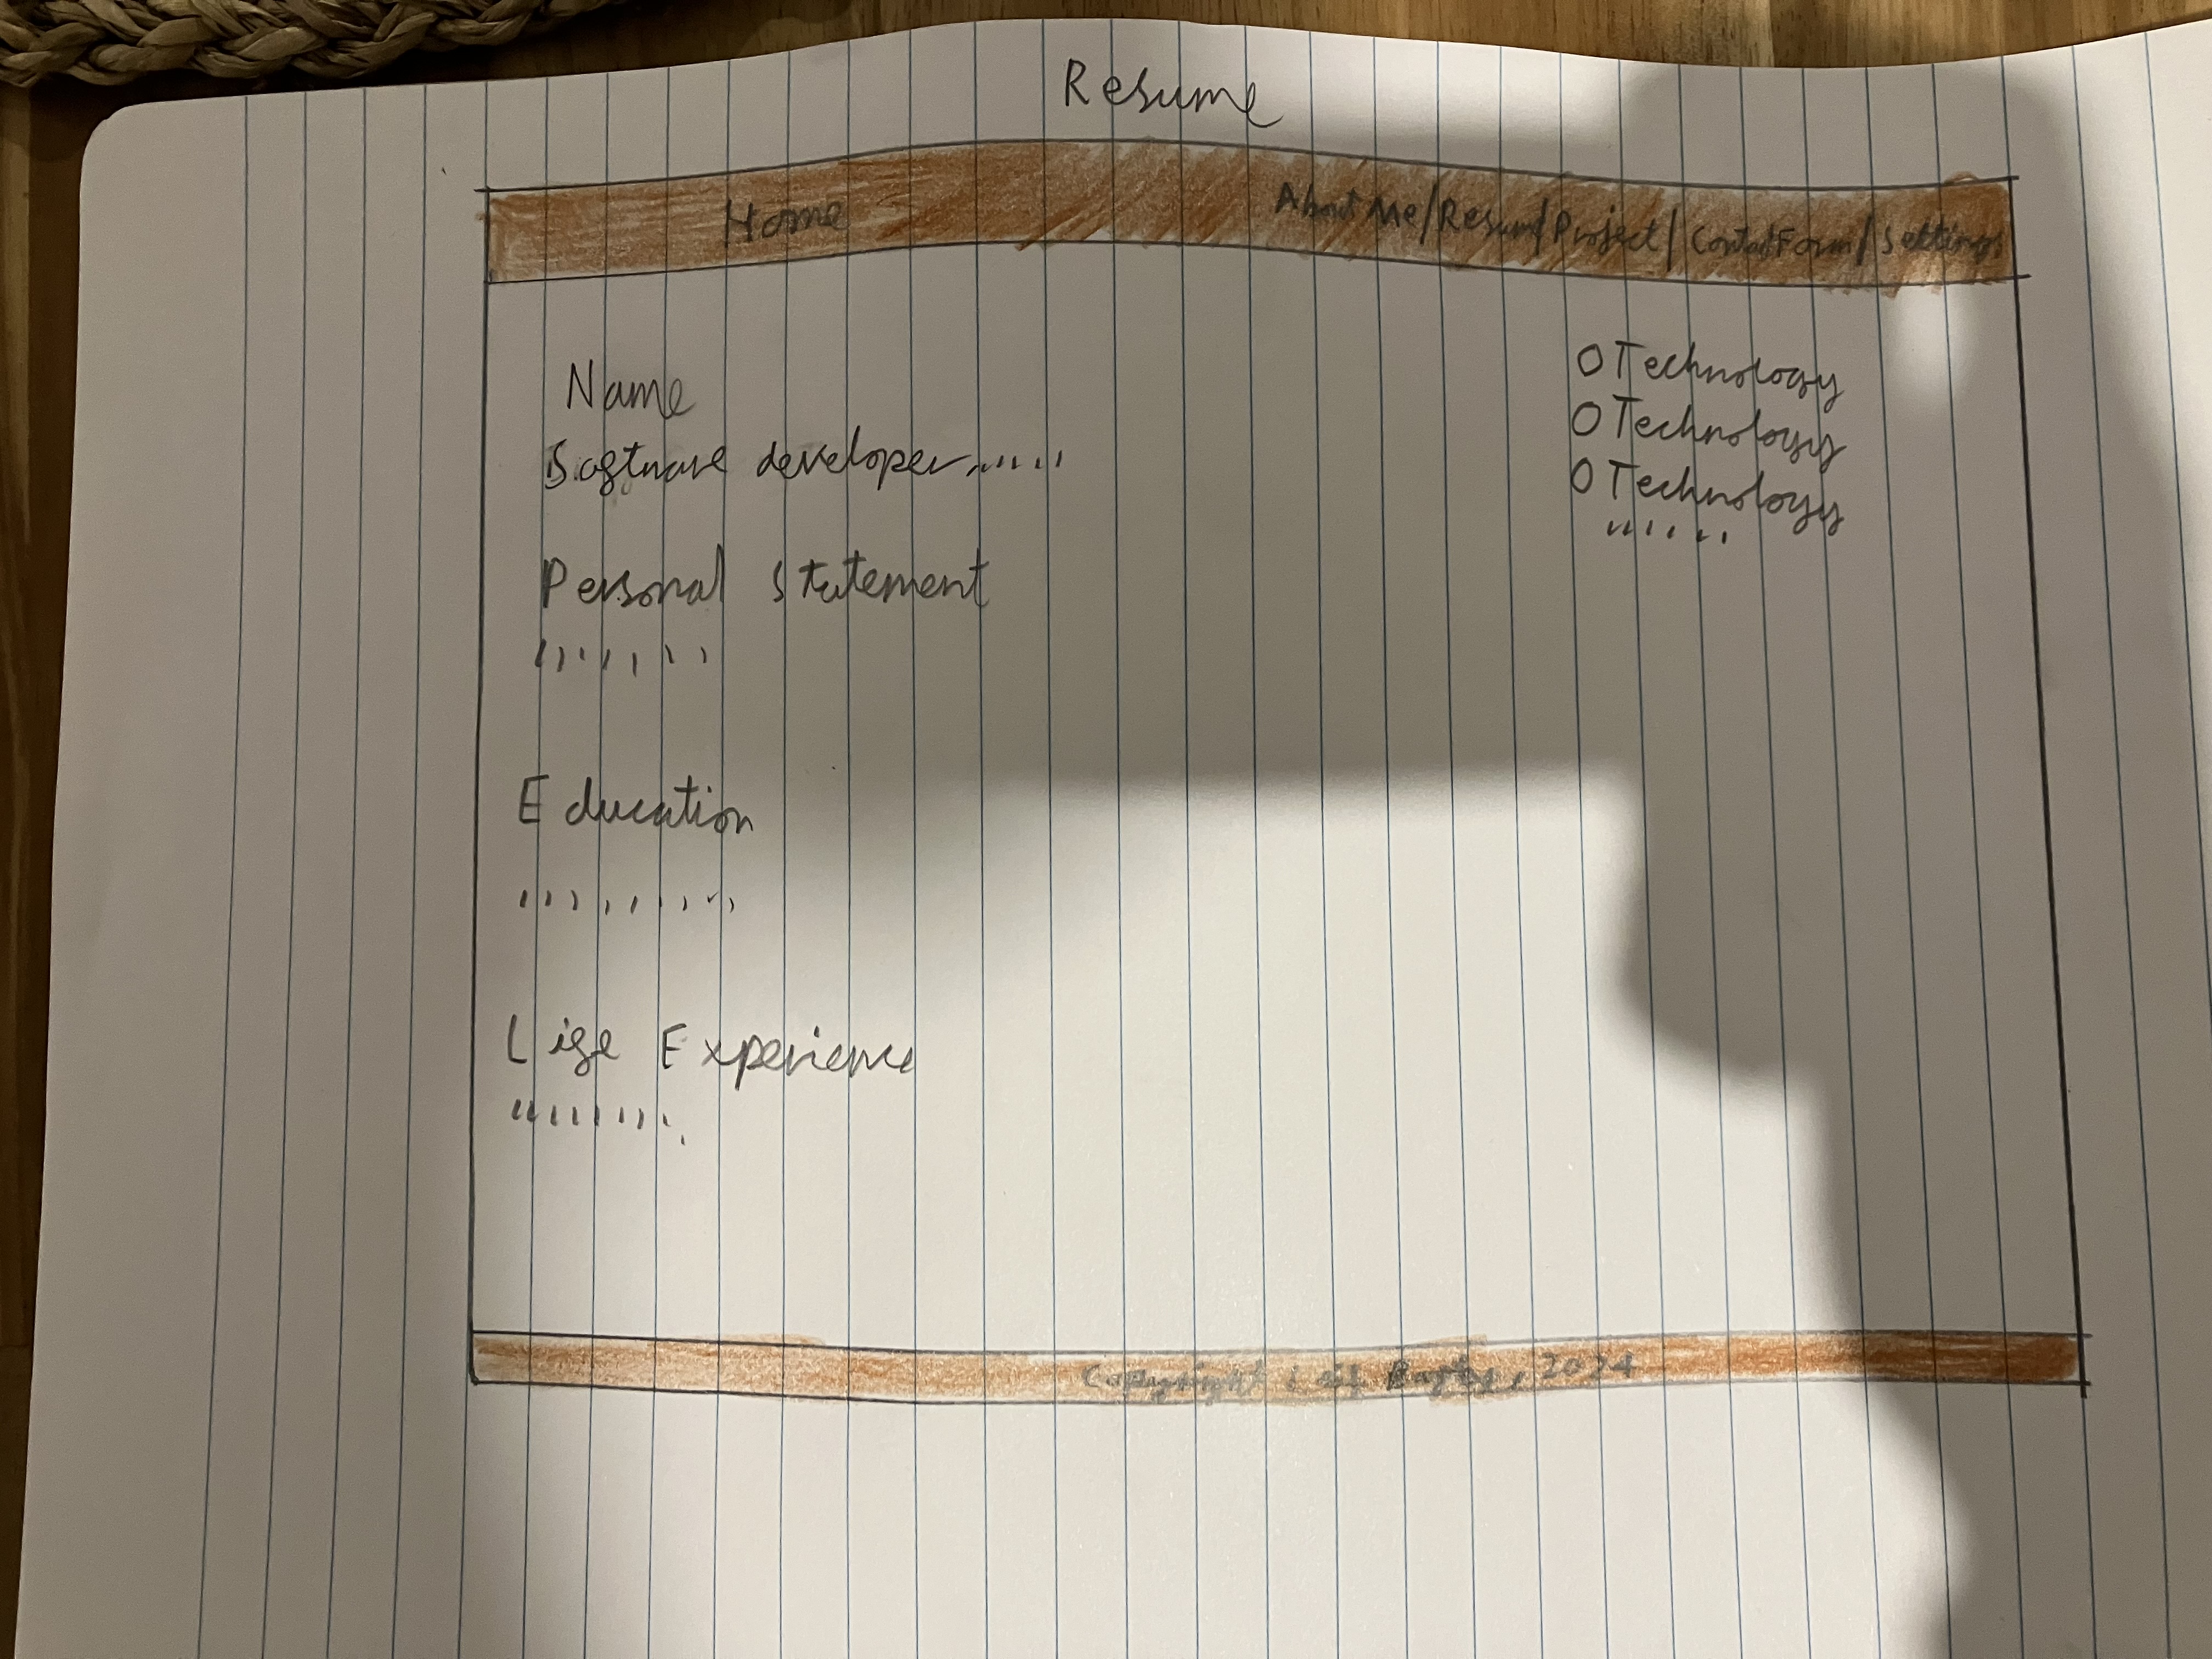 Resume
Home About Me/Resume/Project/Contact Form/Settings
Name
Software developer
Personal Statement
Education
Life Experience
O Technology
O Technology
O Technology
Copyright 2024